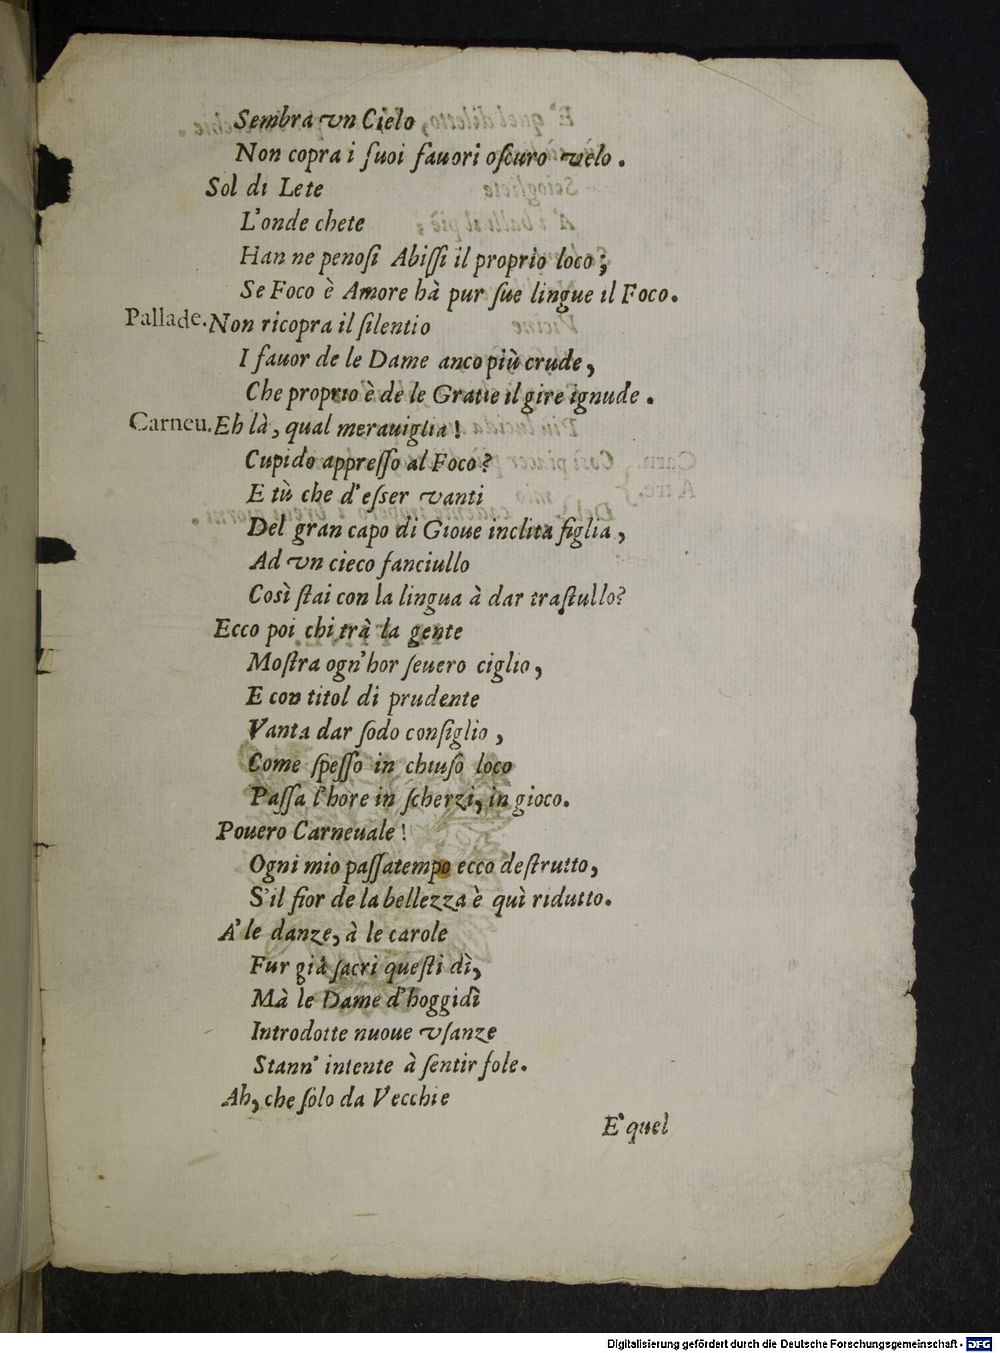 Sembra vn Cielo
Non copra i ſuoi fauori oſcuro velo.
Sol di Lete
L'onde chete
Han ne penoſi Abiſſi il proprio loco;
Se Foco è Amore hà pur ſue lingue il Foco.
Pallade. Non ricopra il ſilentio
I fauor de le Dame anco più crude,
Che proprio è de le Gratie il gire ignude.
Carneu. Eh là, qual merauiglia!
Cupido appreſſo al Foco?
E tù che d'eſser vanti
Del gran capo di Gioue inclita figlia,
Ad vn cieco fanciullo
Così ſtai con la lingua à dar traſtullo?
Ecco poi chi trà la gente
Moſtra ogn'hor ſeuero ciglio,
E con titol di prudente
Vanta dar ſodo conſiglio,
Come ſpeſſo in chiuſo loco
Paſſa l'hore in ſcherzi, in gioco.
Pouero Carneuale!
Ogni mio paſſatempo ecco deſtrutto,
S'il fior de la bellezza è quì ridutto.
A' le danze, à le carole
Fur già ſacri queſti dì,
Mà le Dame d'hoggidì
Introdotte nuoue vſanze
Stann' intente à ſentir fole.
Ah, che ſolo da Vecchie
E' quel
Digitalisierung gefördert durch die Deutsche Forschungsgemeinschaft - DFG